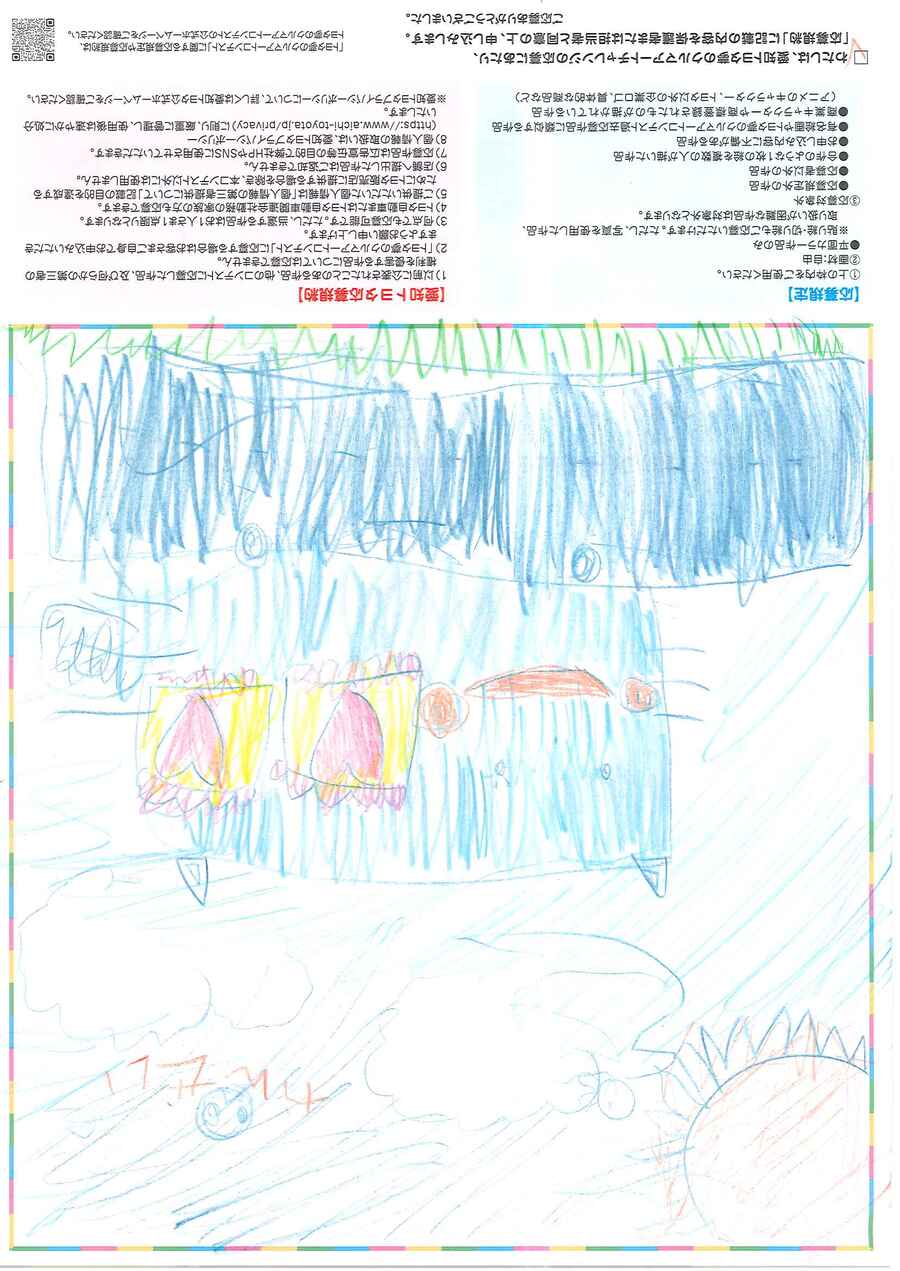 【応募規定】
①上の枠の内をご使用ください。
②画材:自由
●平面カラー作品のみ
※貼り絵・切り絵もご応募いただけます。ただし、写真を使用した作品、
取り扱いが困難な作品は対象外となります。
③応募対象外
●応募規定外の作品
●応募者以外の作品
●合作のような1枚の絵を複数の人が描いた作品
●お申し込み内容に不備がある作品
●有名絵画やトヨタ夢のクルマアートコンテスト過去応募作品に類似する作品
●商業キャラクターや商標登録をされたものが描かれている作品
(アニメのキャラクター、トヨタ以外の企業ロゴ、具体的な商品など)
【愛知トヨタ応募規約】
1)以前に公表されたことのある作品、他のコンテストに応募した作品、及び何らかの第三者の
権利を侵害する作品については応募できません。
2)「トヨタ夢のクルマアートコンテスト」に応募する場合はお客さまご自身でお申込みいただき
ますようお願い申し上げます。
3)何点でも応募可能です。ただし、当選する作品はお1人さま1点限りとなります。
4)トヨタ自動車またはトヨタ自動車関連会社勤務の家族の方も応募できます。
5)ご提供いただいた個人情報は「個人情報の第三者提供について」記載の目的を達成する
ためにトヨタ販売店に提供する場合を除き、本コンテスト以外には使用しません。
6)店舗へ提出した作品はご返却できません。
7)応募作品は広告宣伝等の目的で弊社HPやSNSに使用させていただきます。
8)個人情報の取扱いは、愛知トヨタプライバシーポリシー
(https://www.aichi-toyota.jp/privacy)に則り、厳重に管理し、使用後は速やかに処分
いたします。
※愛知トヨタプライバシーポリシーについて、詳しくは愛知トヨタ公式ホームページをご確認ください。
□わたしは、愛知トヨタ夢のクルマアートチャレンジの応募にあたり、
「応募規約」に記載の内容を保護者または担当者と同意の上、申し込みします。
ご応募ありがとうございました。
「トヨタ夢のクルマアートコンテスト」に関する応募規定や応募規約は、
トヨタ夢のクルマアートコンテストの公式ホームページをご確認ください。